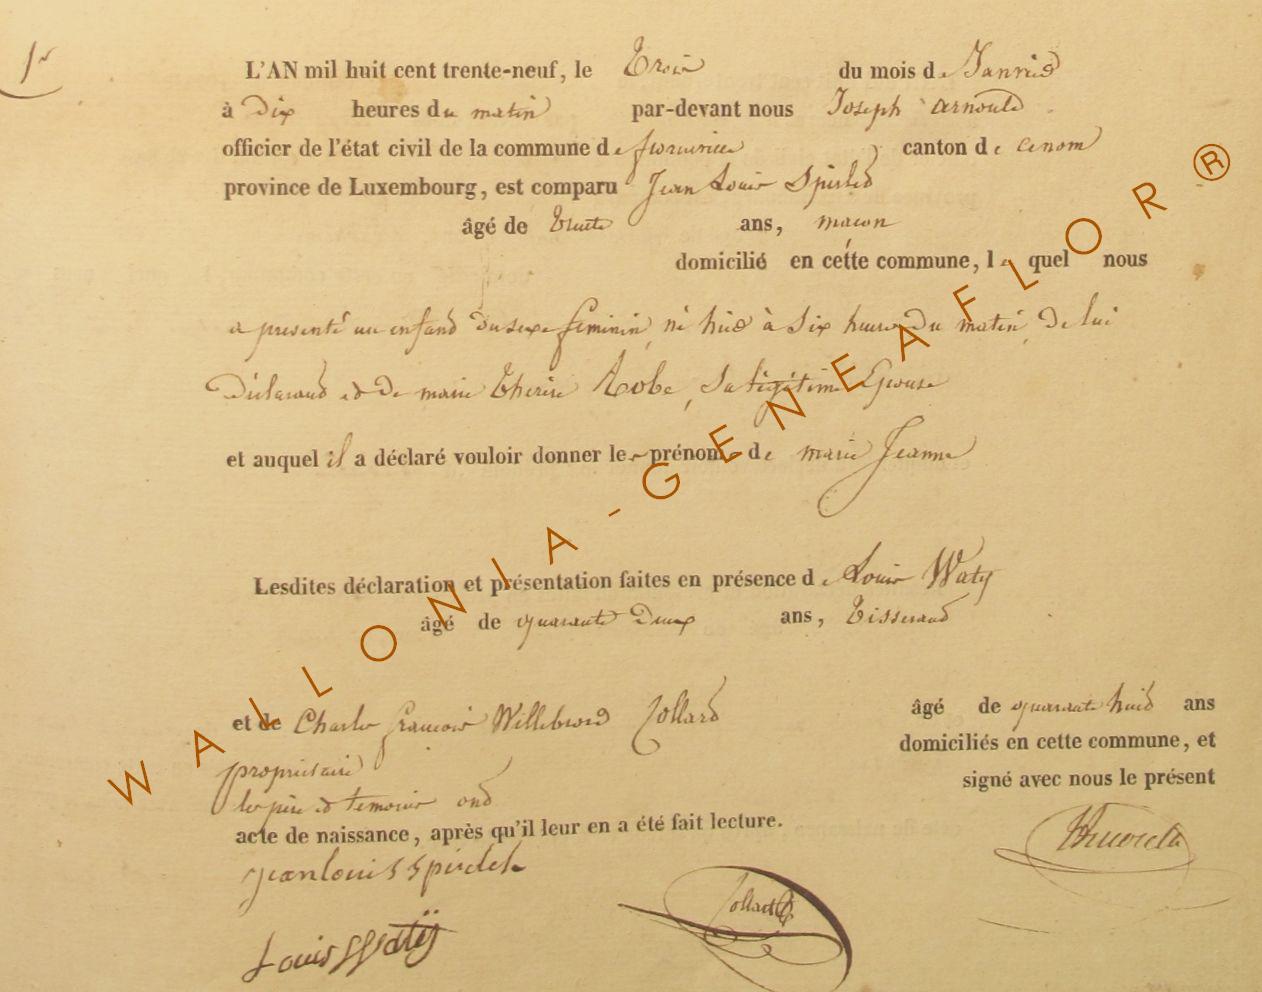 1r
L'AN mil huit cent trente-neuf, le Trois du mois de Janvier
à Dix heures du matin par-devant nous Joseph arnould
officier de l'état civil de la commune de canton de
province de Luxembourg, est comparu Jean Louis
âgé de trente ans, macon
domicilié en cette commune, le quel nous
a presenté un enfand du sexe feminin, né hied à Six heures du matin, de lui
Déclarand et de marie Therese Robe, Sa légitime Epouse
et auquel il a déclaré vouloir donner les prénoms de marie Jeanne
Lesdites déclaration et présentation faites en présence de Louis Waty
âgé de quarante Deux ans, Tisserand
et de Charles francois Willebrord Collard âgé de quarante huid ans
propriétaire domiciliés en cette commune, et
les père et temoins ond signé avec nous le présent
acte de naissance, après qu'il leur en a été fait lecture.
jean louis Collard
Louis Watÿ
WALLONIA-GENEAFLOR®